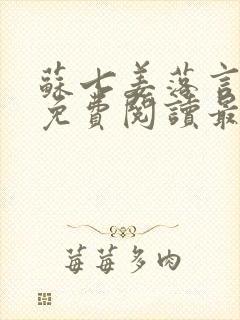 蘇士姜落言
免費閱讀最
莓莓多肉